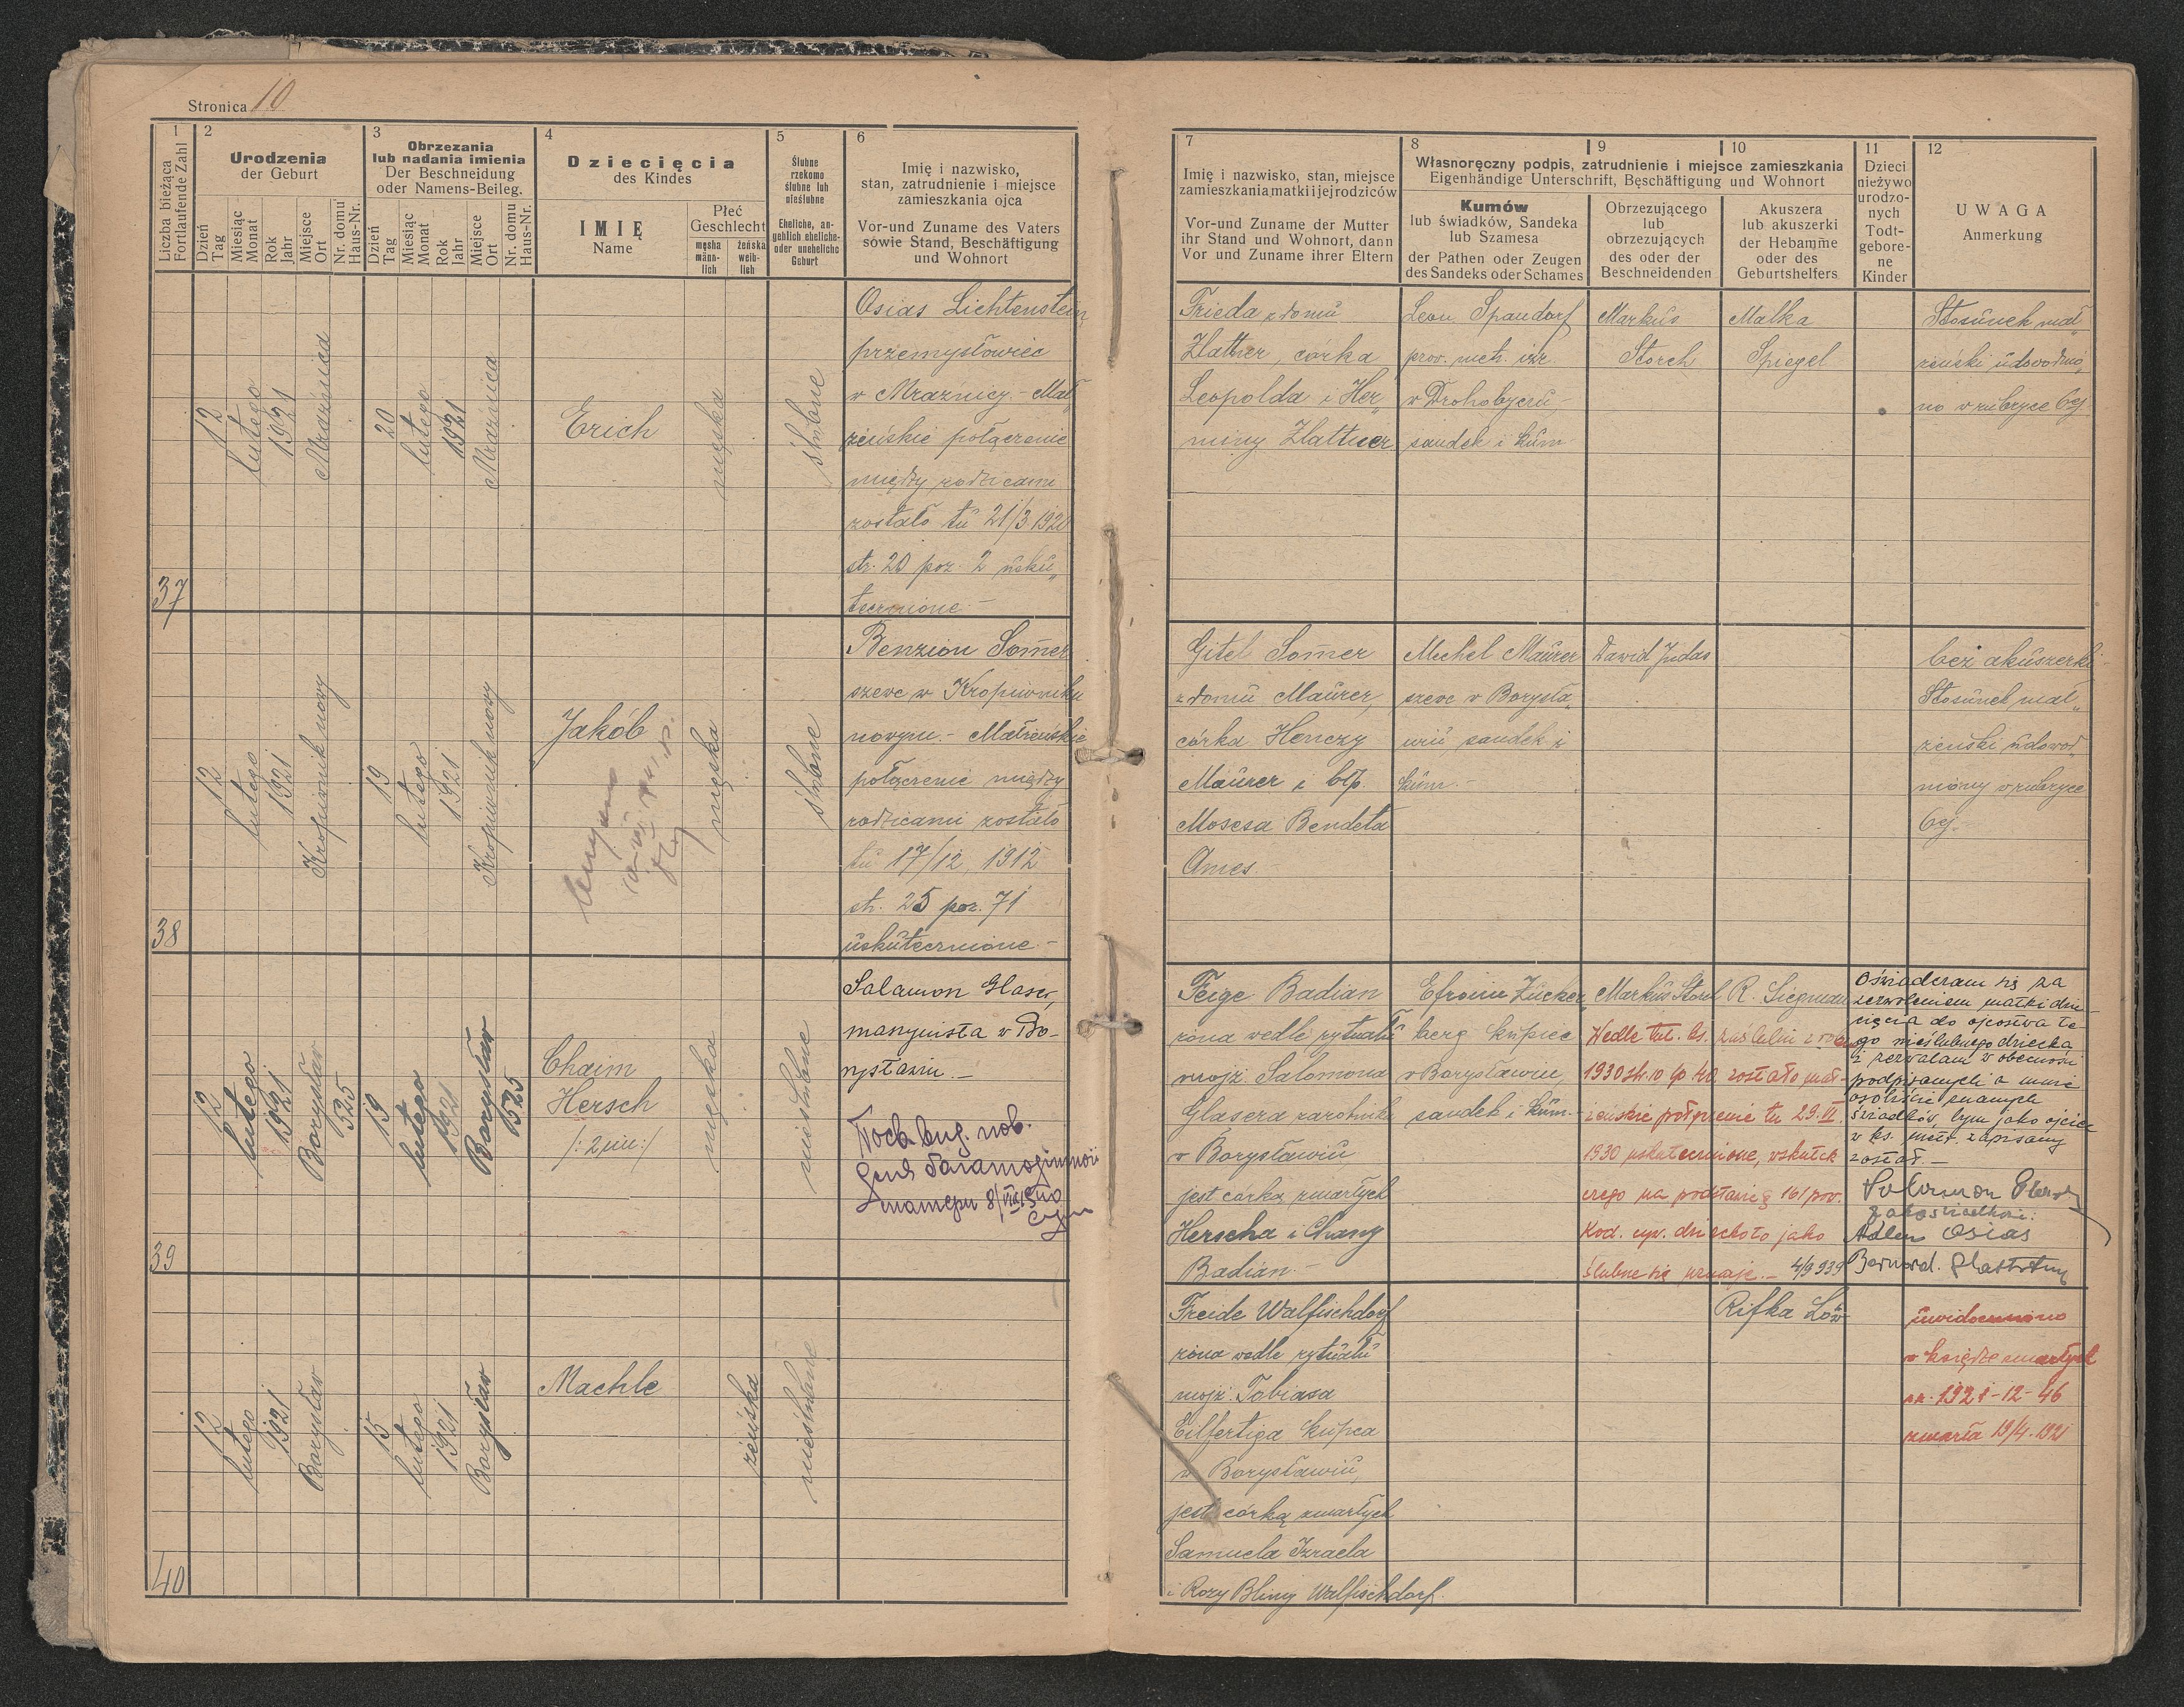 Stronica 10
1
Liczba bieżąca
Fortlaufende Zahl
2
Urodzenia
der Geburt
Dzień
Tag
Miesiąc
Monat
Rok
Jahr
Miejsce
Ort
Nr. domu
Haus-Nr.
3
Obrzezania
lub nadania imienia
Der Beschneidung
oder Namens-Beileg.
Dzień
Tag
Miesiąc
Monat
Rok
Jahr
Miejsce
Ort
Nr. domu
Haus-Nr.
4
Dziecięcia
des Kindes
IMIĘ
Name
Płeć
Geschlecht
męska
männ-
lich
żeńska
weib-
lich
5
Ślubne
rzekomo
ślubne lub
nieślubne
Eheliche, an-
geblich eheliche-
oder uneheliche
Geburt
6
Imię i nazwisko,
stan, zatrudnienie i miejsce
zamieszkania ojca
Vor-und Zuname des Vaters
sowie Stand, Beschäftigung
und Wohnort
7
Imię i nazwisko, stan, miejsce
zamieszkania matki i jej rodziców
Vor-und Zuname der Mutter
ihr Stand und Wohnort, dann
Vor und Zuname ihrer Eltern
8
9
10
Własnoręczny podpis, zatrudnienie i miejsce zamieszkania
Eigenhändige Unterschrift, Beschäftigung und Wohnort
Kumów
lub świadków, Sandeka
lub Szamesa
der Pathen oder Zeugen
des Sandeks oder Schames
Obrzezującego
lub
obrzezujących
des oder der
Beschneidenden
Akuszera
lub akuszerki
der Hebamme
oder des
Geburtshelfers
11
Dzieci
nieżywo
urodzo-
nych
Todt-
gebore-
ne
Kinder
12
UWAGA
Anmerkung
37
12
lutego
1921
Mraźnica
20
lutego
1921
Mraźnica
Erich
męska
ślubne
Osias Lichtenstein
przemysłowiec
w Mraźnicy - Mał„
żeńskie połączenie
między rodzicami
zostało tu 21/3 1920
str. 20 poz. 2 usku„
tecznione -
Frieda z domu
Zlattner, córka
Leopolda i Her„
miny Zlattner
Leon Spandorf
prow. met. izr.
w Drohobyczu -
sandek i kum
Markus
Storch
Malka
Spiegel
Stosunek mał„
żeński udowodnio„
no w rubryce 6ej
38
12
lutego
1921
Kropiwnik nowy
19
lutego
1921
Kropiwnik nowy
Jakób
męska
ślubne
Benzion Somer
szewc w Kropiwniku
nowym. - Małżeńskie
połączenie między
rodzicami zostało
tu 17/12, 1912
str. 25 poz. 71
uskutecznione. -
Gitel Somer
z domu Maurer,
córka Henczy
Maurer i błp.
Mosesa Bendeta
Ames -
Mechel Maurer
szewc w Borysła„
wiu sandek i
kum. -
Dawid Judas
bez akuszerki -
Stosunek mał„
żeński udowod„
niony w rubryce
6ej. -
39
12
lutego
1921
Borysław
525
19
lutego
1921
Borysław
525
Chaim
Hersch
/: 2 im :/
męska
nieślubne
Salamon Glaser,
maszynista w Bo-
rysławiu. -
Feige Badian
żona wedle rytuału
mojż. Salomona
Glasera zarobnika
w Borysławiu
jest córką zmarłych
Herscha i Chany
Badian. -
Efroim Zucker„
berg kupiec
w Borysławiu,
sandek i kum. -
Markus Storch
R. Siegman
Wedle tut. ks. zaślubin z roku
1930 str. 10 lp 40 zostało mał-
żeńskie połączenie tu 29.VI.
1930 uskutecznione, wskutek
czego na podstawie § 161 pow.
Kod. cyw. dziecko to jako
ślubne się uznaje. - 4/9 939
Oświadczam się za
zezwoleniem matki dzie-
cięcia do ojcostwa te-
go nieślubnego dziecka
i zezwalam w obecności
podpisanych a mnie
osobiście znanych
świadków, bym jako ojciec
w ks. metr. zapisany
został. -
Salamon Glaser
jako świadkowie:
Adlem Osias
Bernard
40
12
lutego
1921
Borysław
15
lutego
1921
Borysław
Machle
żeńska
nieślubne
Freide Walfischdorf
żona wedle rytuału
mojż. Tobiasa
Eilfertiga kupca
w Borysławiu,
jest córką zmarłych
Samuela Izraela
i Rozy Bliny Walfischdorf.
Rifka Löw
uwidoczniono
w księdze zmarłych
1921-12-46
zmarła 19/4. 1921